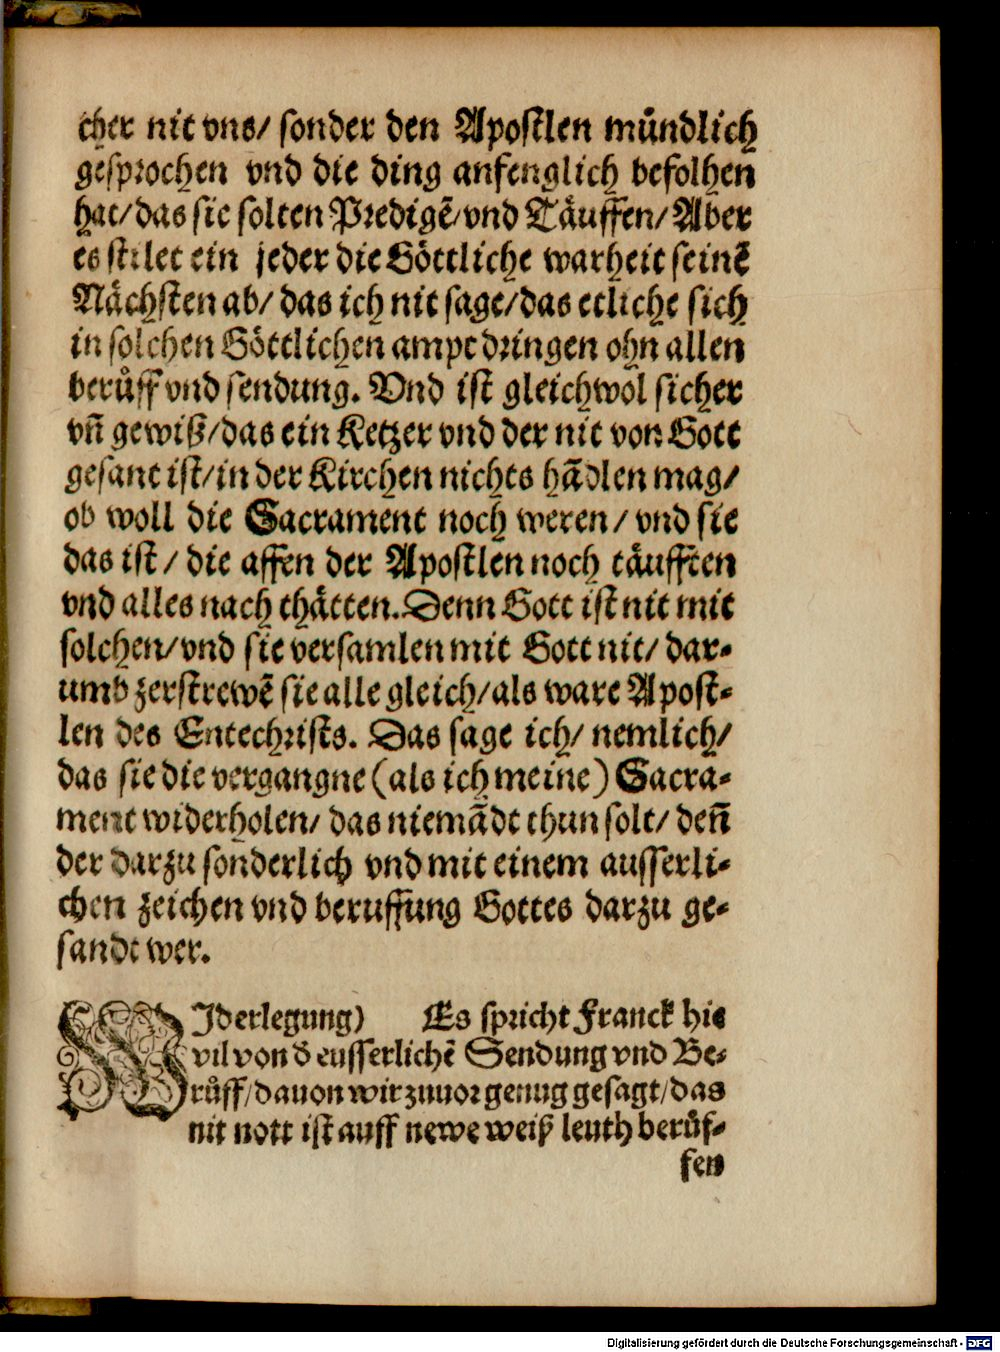 cher nit vns/ sonder den Apostlen mündlich
gesprochen vnd die ding anfenglich befolhen
hat/das sie solten Predigē/vnd Täuffen/Aber
es stilet ein jeder die Göttliche warheit seinē
Nächsten ab/ das ich nit sage/das etliche sich
in solchen Göttlichen ampt dringen ohn allen
berůff vnd sendung. Vnd ist gleichwol sicher
vñ gewiß/das ein Ketzer vnd der nit von Gott
gesant ist/in der Kirchen nichts hādlen mag/
ob woll die Sacrament noch weren/ vnd sie
das ist/ die affen der Apostlen noch täufften
vnd alles nach thätten. Denn Gott ist nit mit
solchen/vnd sie versamlen mit Gott nit/ dar-
umb zerstrewē sie alle gleich/als ware Apost-
len des Entechrists. Das sage ich/ nemlich/
das sie die vergangne (als ich meine) Sacra-
ment widerholen/ das niemādt thun solt/ deñ
der darzu sonderlich vnd mit einem ausserli-
chen zeichen vnd beruffung Gottes darzu ge-
sandt wer.
WIderlegung) Es spricht Franck hie
vil von d eusserlichē Sendung vnd Be-
růff/dauon wir zuuor genug gesagt/das
nit nott ist auff newe weiß leuth berůf-
fen
Digitalisierung gefördert durch die Deutsche Forschungsgemeinschaft - DFG